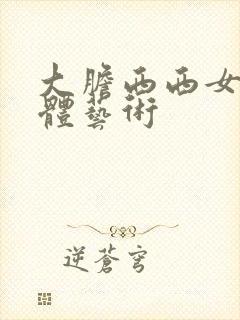 大膽西西女
體藝術
逆蒼穹